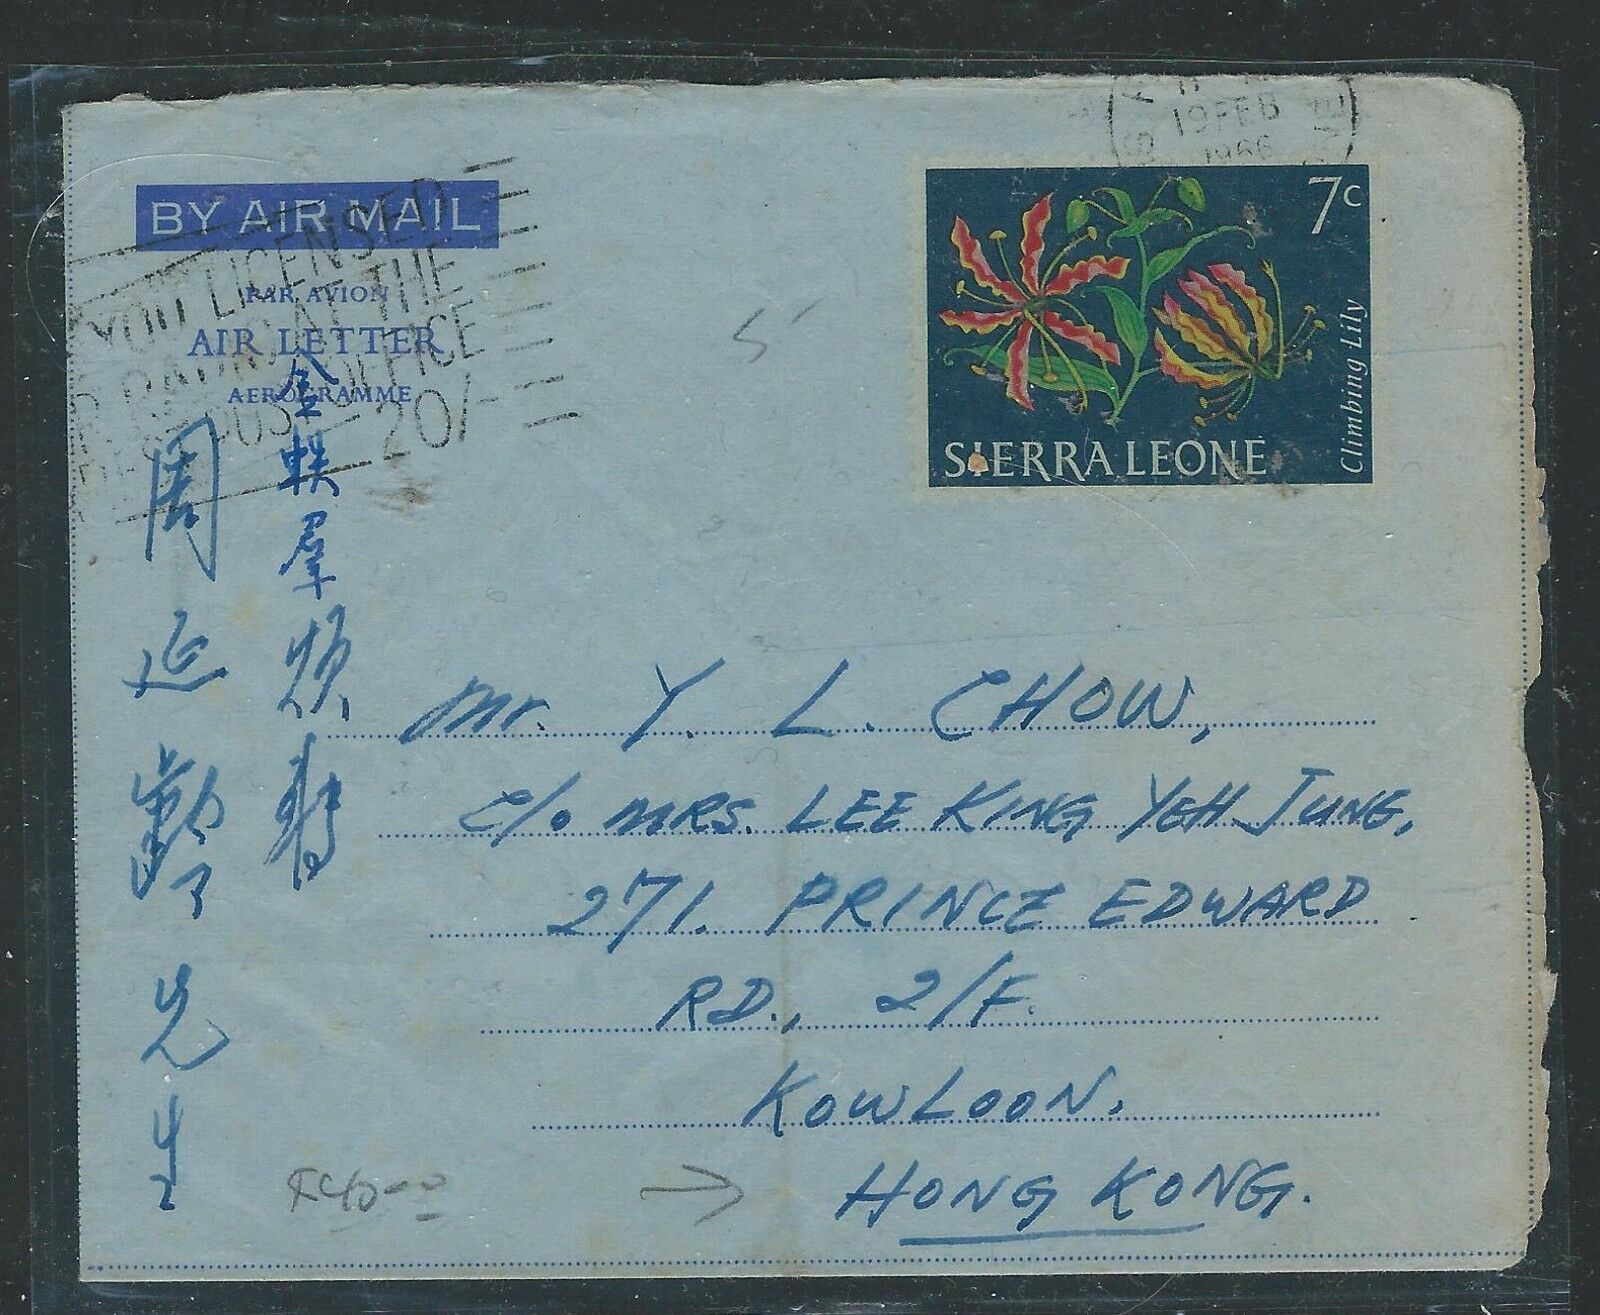 19 FEB
1966
BY AIR MAIL
PAR AVION
AIR LETTER
AEROGRAMME
YOU LICENSED
RADIO AT THE
POST OFFICE
20/-
7c
Climbing Lily
SIERRA LEONE
周延齡先生
羣
Mr. Y. L. CHOW,
c/o MRS. LEE KING YEH JUNG,
271. PRINCE EDWARD
RD., 2/F.
KOWLOON.
HONG KONG.